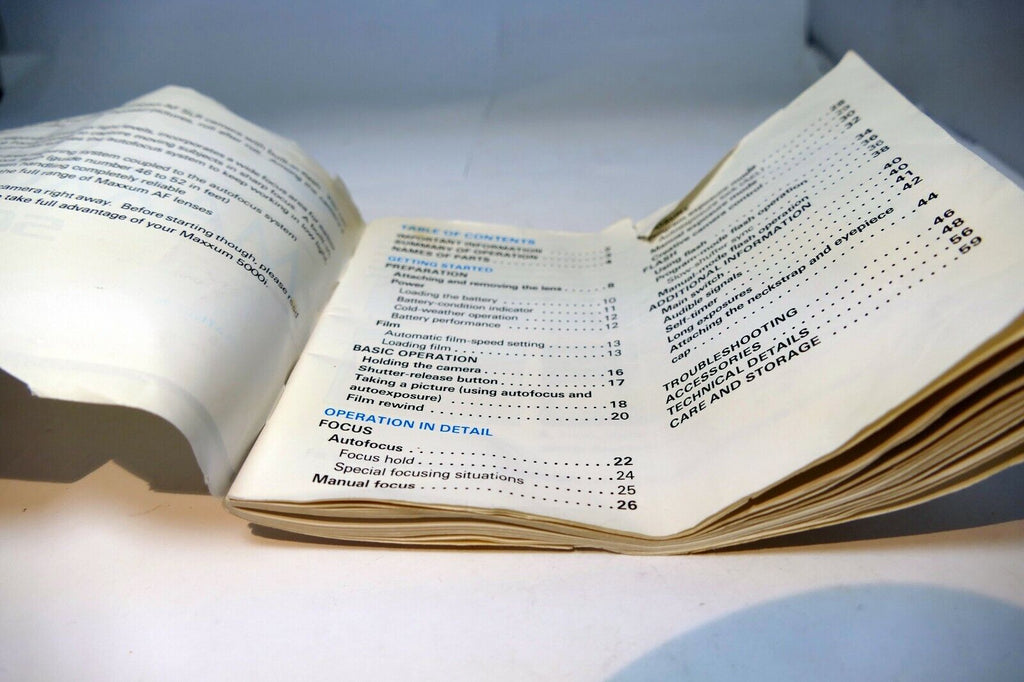 AF SLR camera with both
light levels, incorporates a wide focus area for
moving subjects in sharp focus. A
the autofocus system to keep working in low light
system coupled to the autofocus system
(guide number 46 to 52 in feet)
handling completely reliable
the full range of Maxxum AF lenses
camera right away. Before starting though, please read
take full advantage of your Maxxum 5000i
TABLE OF CONTENTS
IMPORTANT INFORMATION
SUMMARY OF OPERATION
NAMES OF PARTS
GETTING STARTED
PREPARATION
Attaching and removing the lens 8
Power
Loading the battery 10
Battery-condition indicator 11
Cold-weather operation 12
Battery performance 12
Film
Automatic film-speed setting 13
Loading film 13
BASIC OPERATION
Holding the camera 16
Shutter-release button 17
Taking a picture (using autofocus and
autoexposure) 18
Film rewind 20
OPERATION IN DETAIL
FOCUS
Autofocus 22
Focus hold 24
Special focusing situations 25
Manual focus 26
FLASH
Using flash 38
flash operation
sync operation 40
ADDITIONAL INFORMATION
Main switch 40
Audible signals 40
Self-timer 41
Long exposures 42
Attaching the neckstrap and eyepiece
cap 44
TROUBLESHOOTING 46
ACCESSORIES 48
TECHNICAL DETAILS 56
CARE AND STORAGE 59